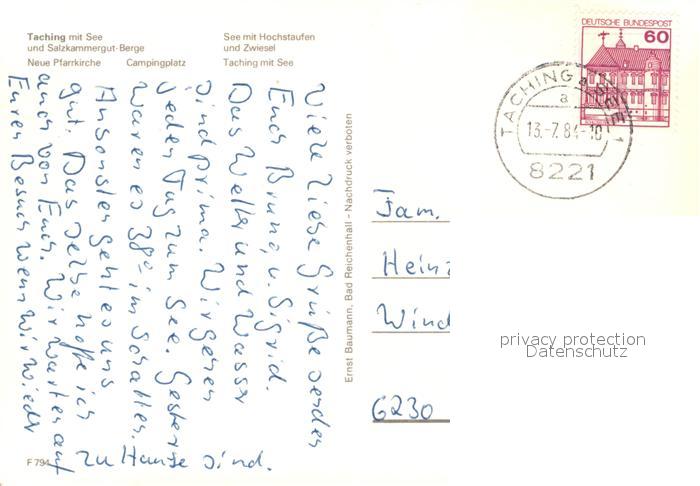 Taching mit See
und Salzkammergut-Berge
Neue Pfarrkirche Campingplatz
See mit Hochstaufen
und Zwiesel
Taching mit See
DEUTSCHE BUNDESPOST
60
TACHING a SEE 1
a
13.-7.84-10
8221
Viele liebe Grüße senden
Euch Bruno u. Sigrid.
Das Wetter und Wasser
sind prima. Wir gehen
jeden Tag zum See. Gestern
waren es 38° im Schatten.
Ansonsten geht es uns
gut. Das selbe hoffe ich
auch von Euch. Wir warten auf
Euren Besuch wenn wir wieder
zu Hause sind.
Ernst Baumann, Bad Reichenhall - Nachdruck verboten
Fam.
Hein
Wind
6230
privacy protection
Datenschutz
F 794